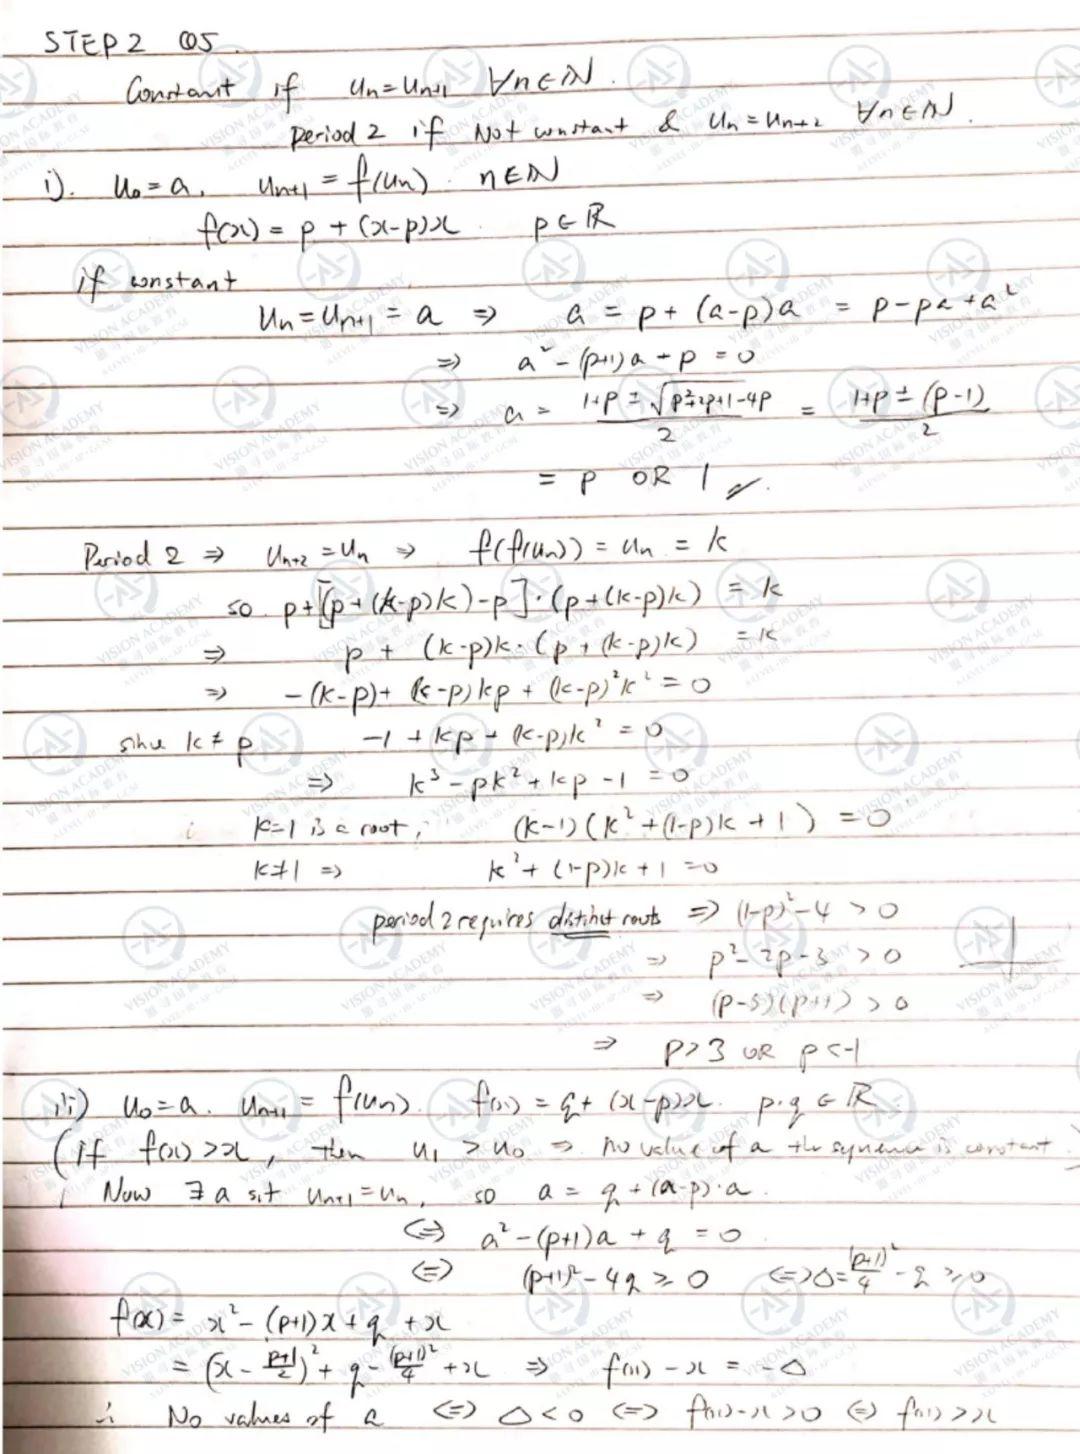 STEP 2 Q5
Constant if uₙ = uₙ₊₁ ∀n∈ℕ.
period 2 if Not constant & uₙ = uₙ₊₂ ∀n∈ℕ.
i). u₀ = a, uₙ₊₁ = f(uₙ). n∈ℕ
f(x) = p + (x-p)x. p∈ℝ
if constant
uₙ = uₙ₊₁ = a ⇒ a = p + (a-p)a = p - pa + a²
⇒ a² - (p+1)a + p = 0
⇒ a = (1+p ± √(p²+2p+1-4p))/2 = (1+p ± (p-1))/2
= p OR 1
Period 2 ⇒ uₙ₊₂ = uₙ ⇒ f(f(uₙ)) = uₙ = k
so p + [p + (k-p)k) - p]·(p + (k-p)k) = k
⇒ p + (k-p)k·(p + (k-p)k) = k
⇒ -(k-p) + (k-p)kp + (k-p)²k² = 0
since k ≠ p -1 + kp + (k-p)k² = 0
⇒ k³ - pk² + kp - 1 = 0
k=1 is a root, (k-1)(k² + (1-p)k + 1) = 0
k≠1 ⇒ k² + (1-p)k + 1 = 0
period 2 requires distinct roots ⇒ (1-p)² - 4 > 0
⇒ p² - 2p - 3 > 0
⇒ (p-3)(p+1) > 0
⇒ p>3 OR p<-1
ii) u₀ = a. uₙ₊₁ = f(uₙ). f(x) = q + (x-p)x. p,q∈ℝ
(if f(x) > x, then u₁ > u₀ ⇒ no value of a the sequence is constant.)
Now ∃ a s.t uₙ₊₁ = uₙ, so a = q + (a-p)·a
⇔ a² - (p+1)a + q = 0
⇔ (p+1)² - 4q ≥ 0 ⇔ Δ = (p+1)²/4 - q ≥ 0
f(x) = x² - (p+1)x + q + x
= (x - (p+1)/2)² + q - (p+1)²/4 + x ⇒ f(x) - x = -Δ
∴ No values of a ⇔ Δ < 0 ⇔ f(x) - x > 0 ⇔ f(x) > x
VISION ACADEMY
ALEVEL·IB·AP·GCSE